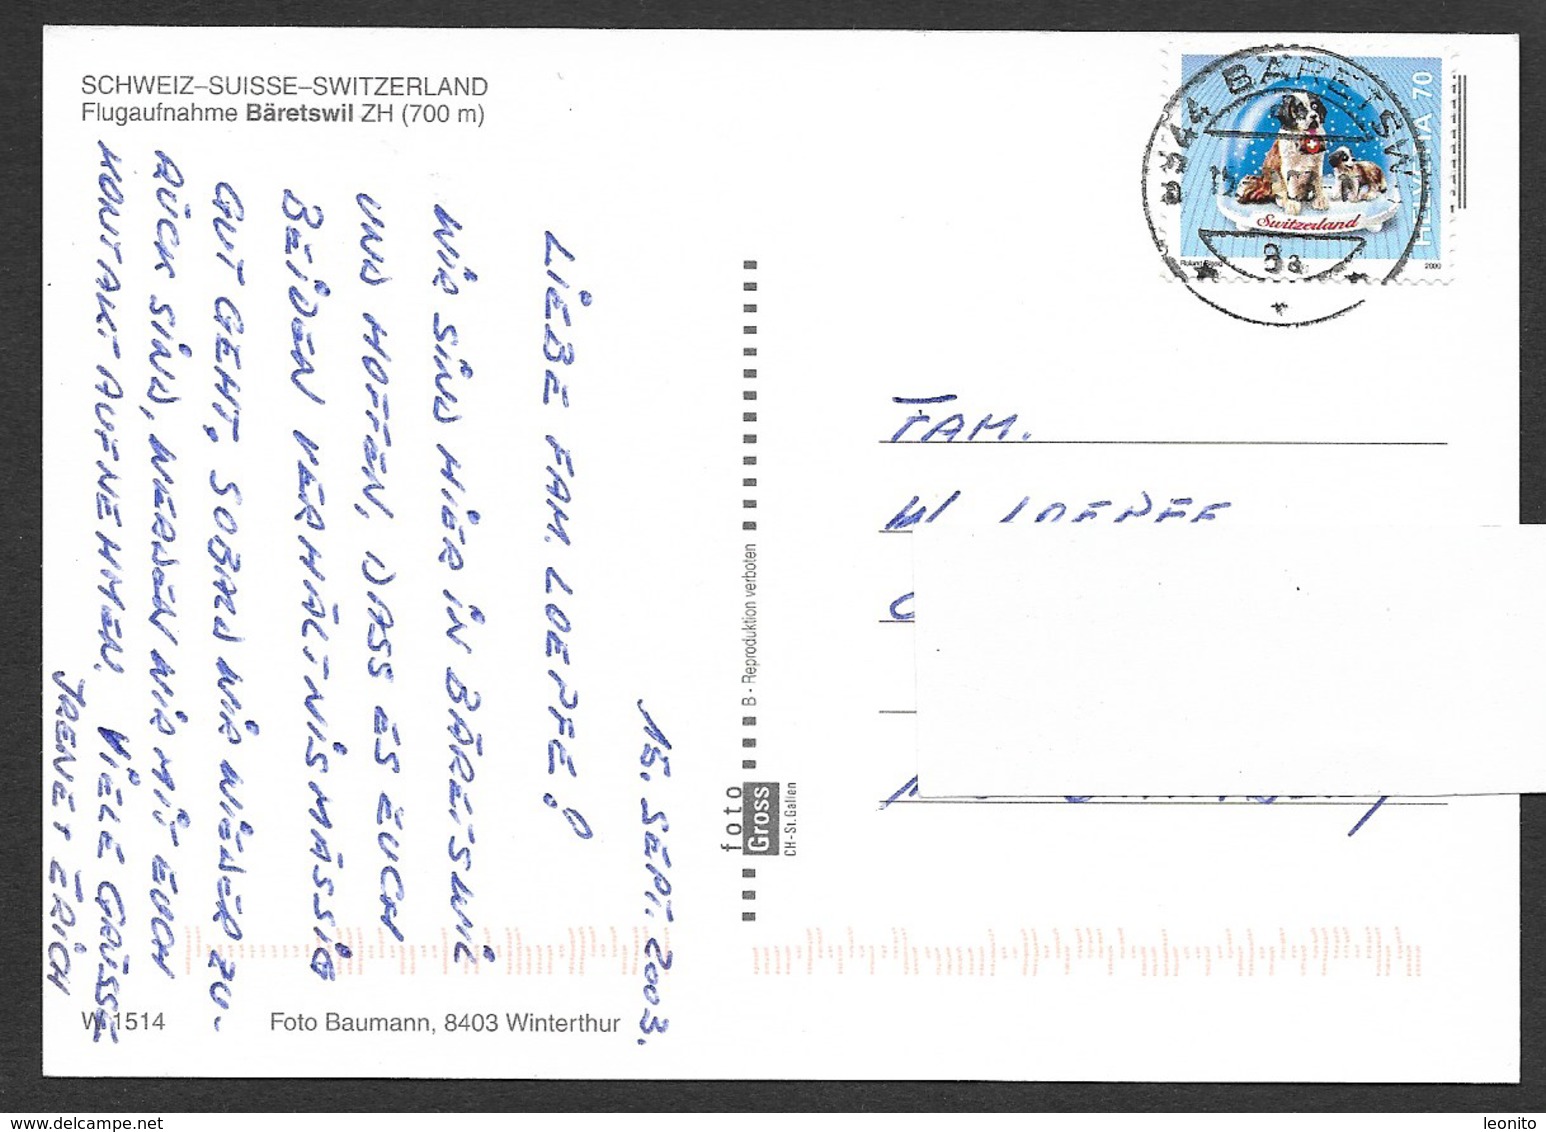 SCHWEIZ–SUISSE–SWITZERLAND
Flugaufnahme Bäretswil ZH (700 m)
15. SEPT. 2003.
LIEBE FAM. LOEPFE!
WIR SIND HIER IN BÄRETSWIL
UND HOFFEN, DASS ES EUCH
BEIDEN VERHÄLTNISMÄSSIG
GUT GEHT, SOBALD WIR WIEDER ZU-
RÜCK SIND, WERDEN WIR MIT EUCH
KONTAKT AUFNEHMEN. VIELE GRÜSSE
IRENE + ERICH
W 1514
Foto Baumann, 8403 Winterthur
B - Reproduktion verboten
foto
Gross
CH-St.Gallen
8344 BÄRETSW
HELVETIA 70
Switzerland
2000
FAM.